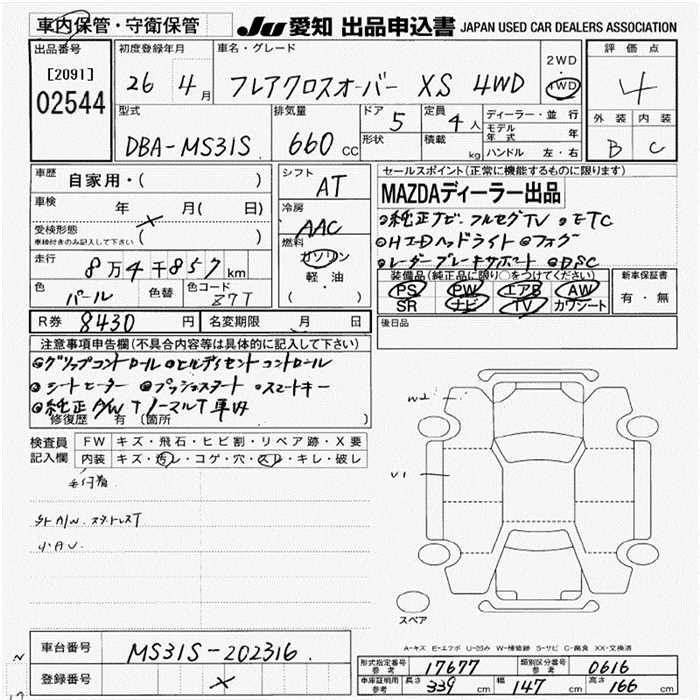 車内保管・守衛保管 JU 愛知 出品申込書 JAPAN USED CAR DEALERS ASSOCIATION
出品番号 [2091] 02544
初度登録年月 26 4月
車名・グレード フレアクロスオーバー XS 4WD
2WD
4WD
評価点 4
外装 内装
B C
型式 DBA-MS31S
排気量 660 CC
ドア 5
形状
定員 4人
積載 kg
ディーラー・並行
モデル年式 年
ハンドル 左・右
車歴 自家用・( )
車検 年 月( 日) ×
受検形態
車検付きのみ記入して下さい ( )
走行 8万4千857km
色 パール 色替 色コード Z7T
シフト AT
冷房 AAC
燃料 ガソリン
軽・油
( )
セールスポイント(正常に機能するものに限ります)
MAZDAディーラー出品
純正ナビ フルセグTV ETC
HIDヘッドライト フォグ
レーダーブレーキサポート DSC
装備品(純正品に限り〇をつけてください)
PS PW エアB AW
SR ナビ TV カワシート
新車保証書
有・無
R券 8430円 名変期限 月 日
後日品
注意事項申告欄(不具合内容等は具体的に記入して下さい)
グリップコントロール ヒルディセントコントロール
シートヒーター プッシュスタート スマートキー
純正A/W T ノーマルT 車内
修復歴 有(箇所 )
検査員記入欄 FW キズ・飛石・ヒビ割・リペア跡・X要
内装 キズ・汚レ・コゲ・穴・スレ・キレ・破レ
毛付着
外A/W. スタッドレスT
小AU.
W2
U1
スペア
A-キズ E-エクボ U-凹み W-補修跡 S-サビ C-腐食 XX-交換済
車台番号 MS31S-202316
登録番号 ×
N
形式指定番号 参考 17677 類別区分番号 参考 0616
車庫証明用 参考 長さ 339cm 幅 147cm 高さ 166cm